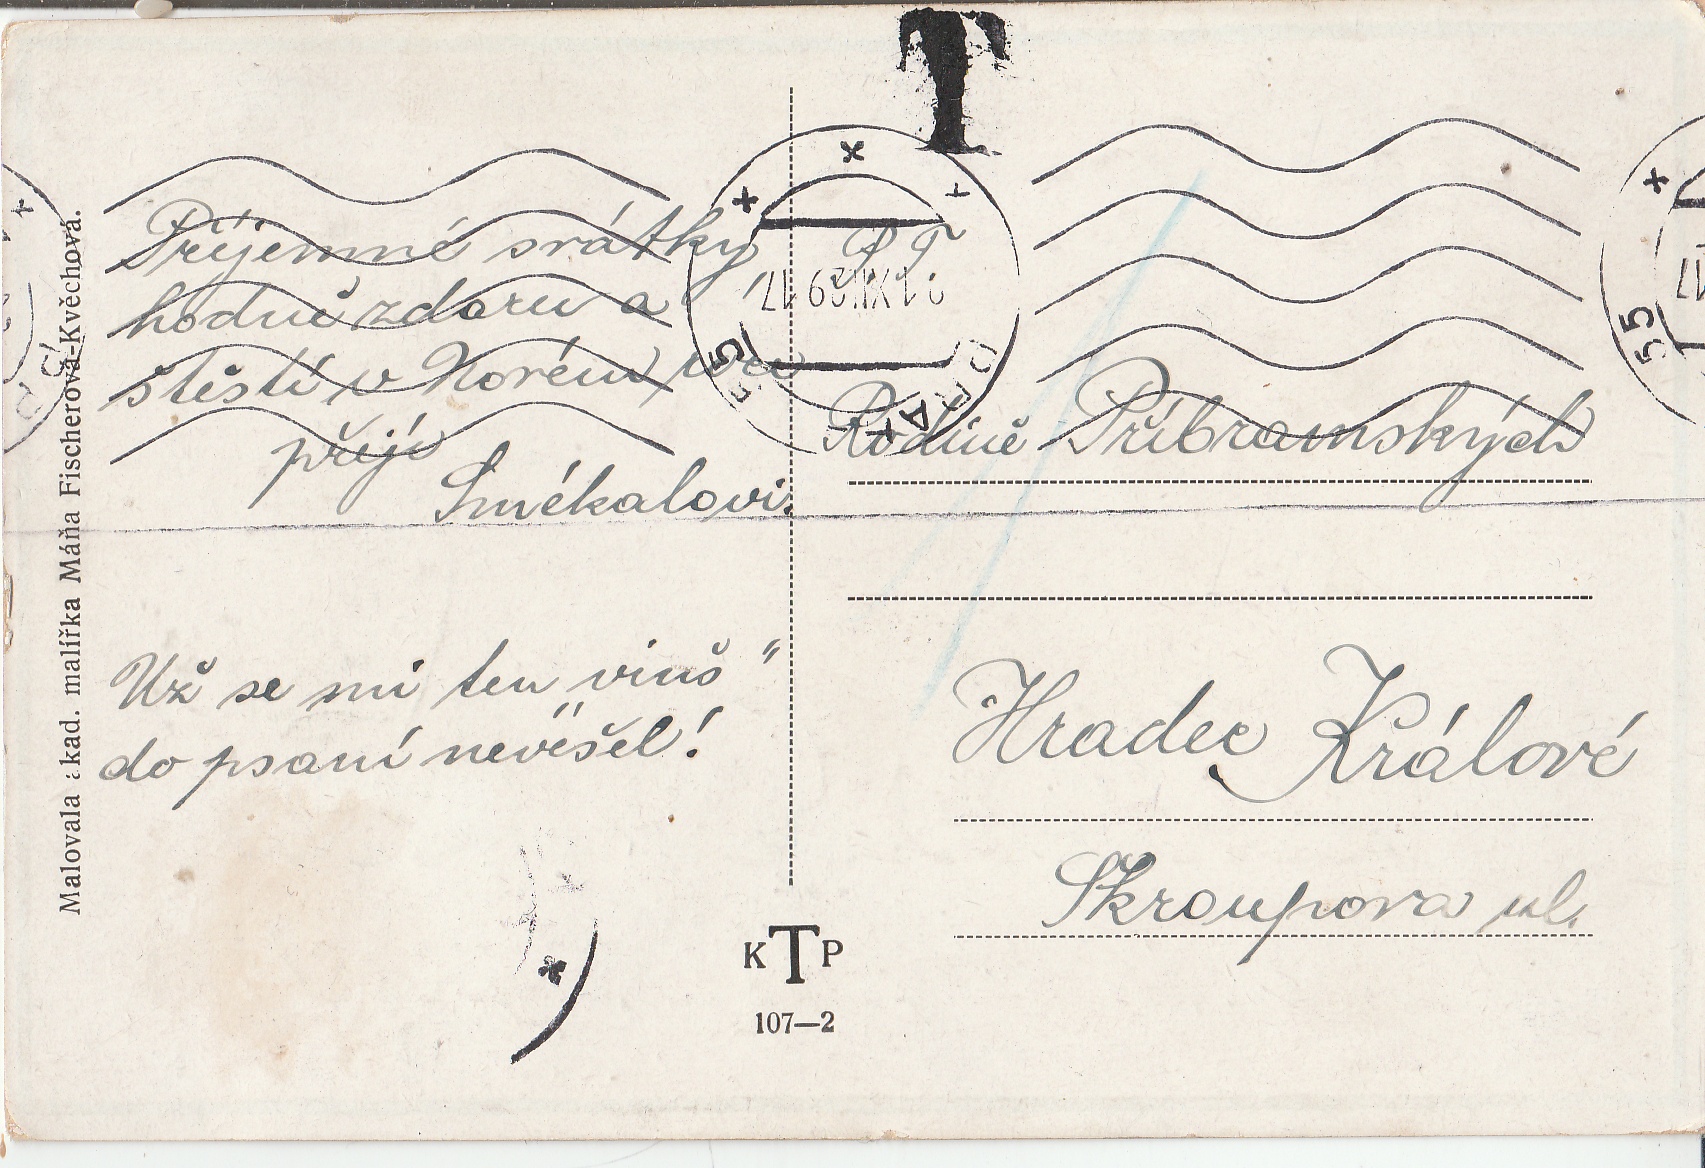 T
Příjemné svátky,
hodně zdaru a
štěstí v Novém roce
přejí
Smékalovi.
Už se mi ten vinš"
do psaní nevěšel!
Malovala akad. malířka Máňa Fischerová-Kvěchová.
P T
Rodině Příbramských
Hradec Králové
Škroupova ul.
K T P
107—2
55
55